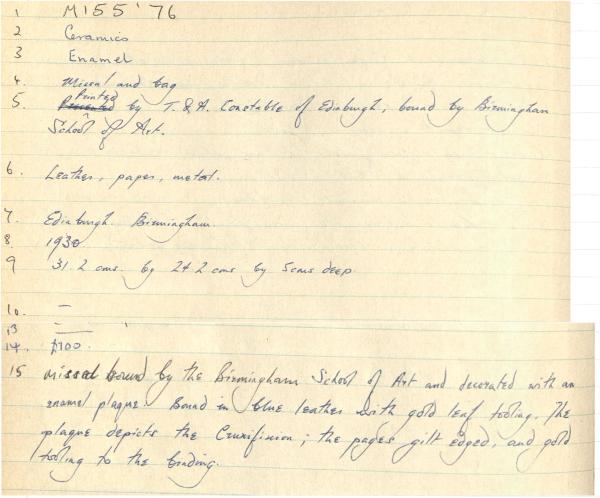 1 M155 '76
2 Ceramics
3 Enamel
4. Missal and bag
5. Printed by T. & A. Constable of Edinburgh, bound by Birmingham
School of Art.
6. Leather, paper, metal.
7. Edinburgh. Birmingham.
8. 1930
9 31.2 cms. by 24.2 cms by 5cms deep.
10. —
13 —
14. £100.
15 Missal bound by the Birmingham School of Art and decorated with an
enamel plaque. Bound in blue leather with gold leaf tooling. The
plaque depicts the Crucifixion; the pages gilt edged, and gold
tooling to the binding.